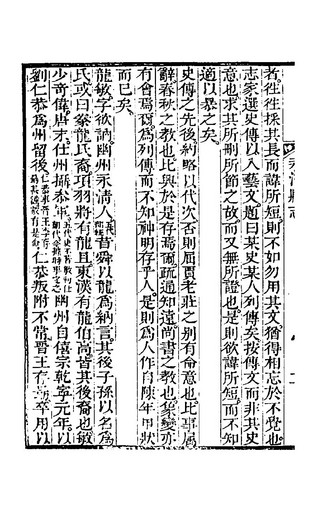 者往往採其長而諱所短則不如勿用其文猶得相忘於不覺也
志家選史傳以入藝文題曰某史某人列傳矣按傳文而非其史
意也求其所刑所節之故而又無所證也是則欲諱所短而不知
適以暴之矣
史傳之先後約略以代次否則屈賈老莊之别有命意也比事屬
辭春秋之教也比興於是存焉爾疏通知遠尚書之教也象變亦
有會焉爾爲列傳而不知神明存乎人是則爲人作自陳年甲狀
而已矣
龍敏字欲訥幽州永清人昔舜以龍爲納言其後子孫以名爲
氏或曰豢龍氏裔項羽將有龍且東漢有龍伯高皆其後裔也敏
少奇偉唐末仕州攝參軍幽州自僖宗乾寧元年以
劉仁恭爲州留後仁恭叛附不常晉王存勗卒用以
永清縣志